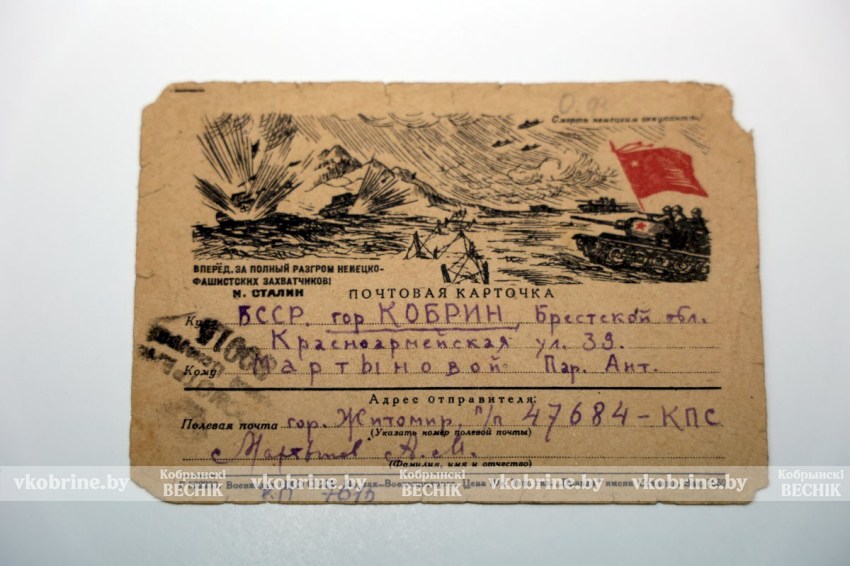 Смерть немецким оккупантам
ВПЕРЁД, ЗА ПОЛНЫЙ РАЗГРОМ НЕМЕЦКО-
ФАШИСТСКИХ ЗАХВАТЧИКОВ!
И. СТАЛИН
ПОЧТОВАЯ КАРТОЧКА
Куда БССР. гор КОБРИН, Брестской обл.
Красноармейская ул. 39.
Кому Мартыновой Пар. Ант.
Адрес отправителя:
Полевая почта гор. Житомир, п/п 47684-КПС
(Указать номер полевой почты)
Мартынов А. М.
(Фамилия, имя и отчество)
vkobrine.by Кобрынскі ВЕСНІК vkobrine.by Кобрынскі ВЕСНІК vkobrine.by Кобрынскі ВЕСНІК
КП 7675